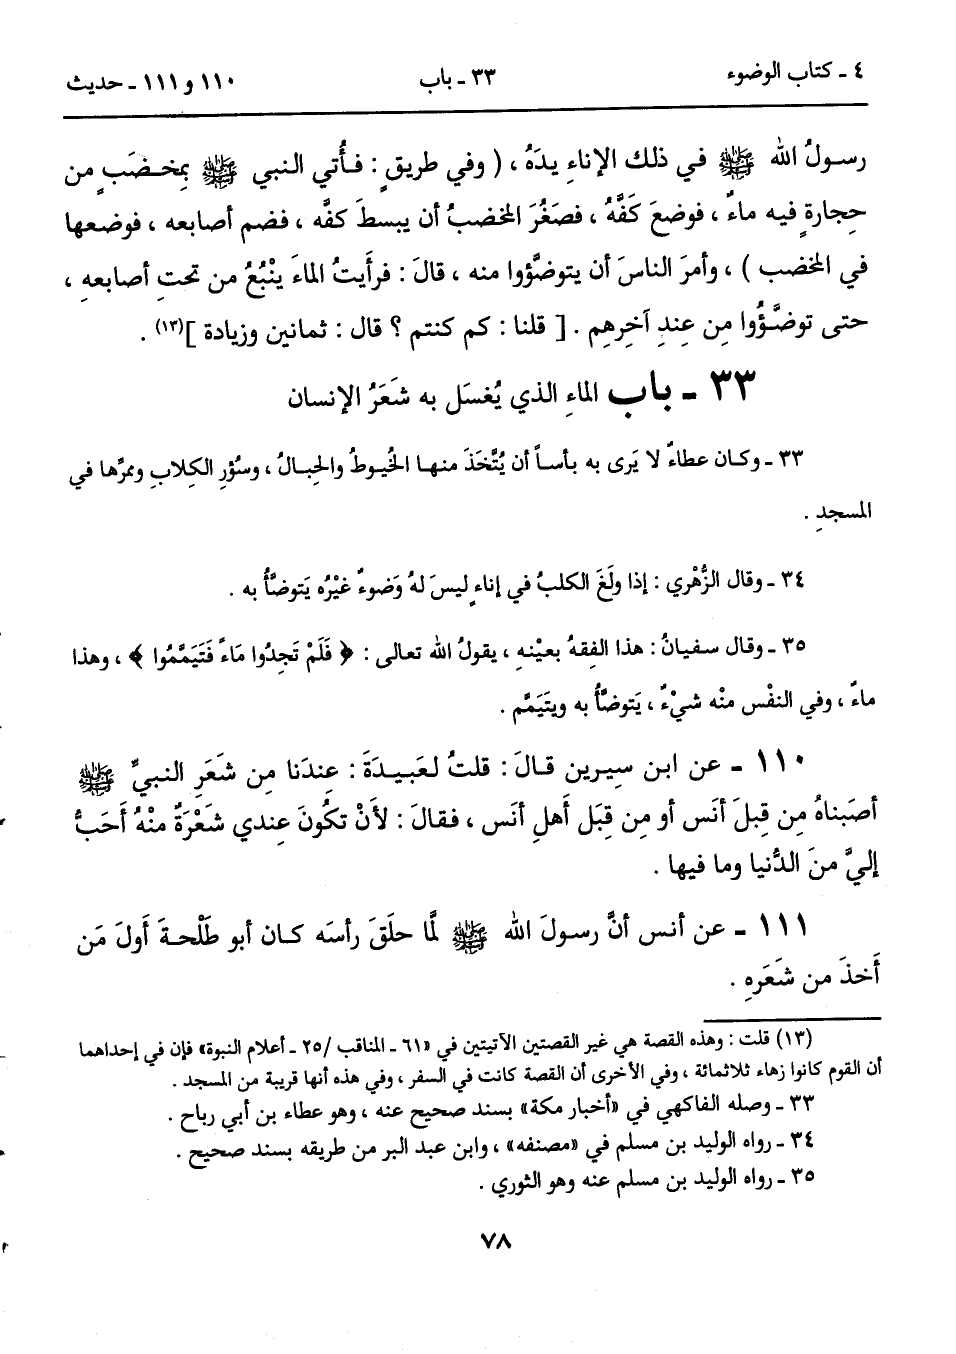 ٤ ـ كتاب الوضوء
٣٣ ـ باب
١١٠ و ١١١ ـ حديث
رسولُ الله ﷺ في ذلك الإناءِ يدَهُ ، ( وفي طريقٍ : فأُتي النبي ﷺ بِمِخضَبٍ من
حِجارةٍ فيه ماءٌ ، فوضعَ كَفَّهُ ، فصَغُرَ المخضبُ أن يبسطَ كفَّه ، فضم أصابعه ، فوضعها
في المخضب ) ، وأمرَ الناسَ أن يتوضَّؤوا منه ، قالَ : فرأَيتُ الماءَ ينْبُعُ من تحتِ أصابعهِ ،
حتى توضَّؤُوا مِن عِندِ آخِرهِم . [ قلنا : كم كنتم ؟ قال : ثمانين وزيادة ](١٣) .
٣٣ ـ باب الماءِ الذي يُغسَل به شَعَرُ الإنسان
٣٣ ـ وكان عطاءٌ لا يَرى به بأساً أن يُتَّخَذَ منها الخُيوطُ والحِبالُ ، وسُؤرِ الكِلابِ وممرِّها في
المسجدِ .
٣٤ ـ وقال الزُّهْري : إذا ولَغَ الكلبُ في إناءٍ ليسَ لهُ وَضوءٌ غيْرُه يَتوضَّأُ به .
٣٥ ـ وقال سفيانُ : هذا الفِقهُ بعيْنهِ ، يقولُ الله تعالى : ﴿ فَلَمْ تَجِدُوا مَاءً فَتَيَمَّمُوا ﴾ ، وهذا
ماءٌ ، وفي النفْس منْه شيْءٌ ، يَتوضَّأُ به ويتَيَمَّم .
١١٠ ـ عن ابن سِيرين قالَ : قلتُ لعَبيدَةَ : عِندَنا مِن شَعَرِ النبيِّ ﷺ
أصَبناهُ مِن قِبلَ أنَس أو مِن قِبَل أَهلِ أنَس ، فقالَ : لأَنْ تكُونَ عِندي شعْرَةٌ منْهُ أَحَبُّ
إليَّ منَ الدُّنيا وما فيها .
١١١ ـ عن أنس أنَّ رسولَ الله ﷺ لمَّا حلَقَ رأسَه كان أبو طَلْحةَ أَولَ مَن
أَخذَ من شَعَرِهِ .
(١٣) قلت : وهذه القصة هي غير القصتين الآتيتين في «٦١ ـ المناقب /٢٥ ـ أعلام النبوة» فإن في إحداهما
أن القوم كانوا زهاء ثلاثمائة ، وفي الأخرى أن القصة كانت في السفر ، وفي هذه أنها قريبة من المسجد .
٣٣ ـ وصله الفاكهي في «أخبار مكة» بسند صحيح عنه ، وهو عطاء بن أبي رباح .
٣٤ ـ رواه الوليد بن مسلم في «مصنفه» ، وابن عبد البر من طريقه بسند صحيح .
٣٥ ـ رواه الوليد بن مسلم عنه وهو الثوري .
٧٨